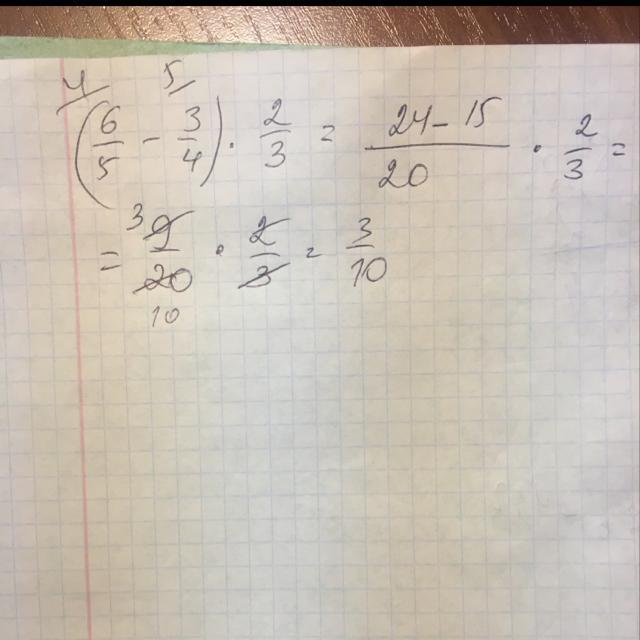 4/ 5/
(6/5 - 3/4) · 2/3 = 24-15/20 · 2/3 =
= 3 9/20 10 · 2/3 = 3/10